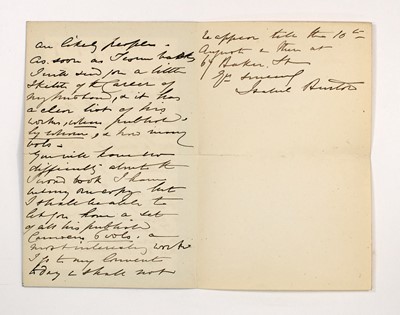 are likely people.
As soon as I come back
I will send you a little
Sketch of the Career of
my husband, & it has
a clear list of his
works, when published,
by whom, & how many
vols.
You will have no
difficulty about the
Sword book I have
only one copy but
I shall be able to
let you have a set
of all his published
Camoens 6 vols. a
most interesting work.
I go to my Convent
to day & shall not
re appear till the 10th
August & then at
67 Baker St
Yrs sincerely
Isabel Burton